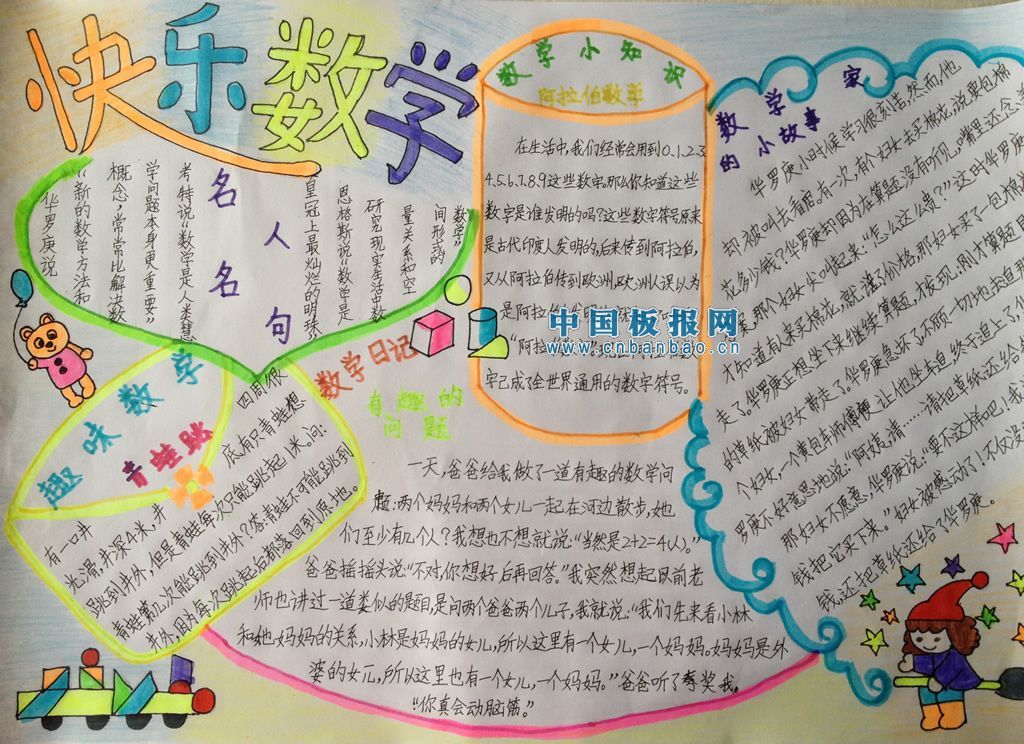 快乐数学
名人名句
数学
间形式的
量关系和空
研究现实生活中数
恩格斯说“数学是
皇冠上最灿烂的明珠”
考特说“数学是人类智慧
学问题本身更重要”
概念，常常比解决数
“新的数学方法和
华罗庚说
数学小知识
阿拉伯数字
在生活中，我们经常会用到0.1.2.3
4.5.6.7.8.9这些数字。那么你知道这些
数字是谁发明的吗？这些数字符号原来
是古代印度人发明的，后来传到阿拉伯，
又从阿拉伯传到欧洲，欧洲人误以为
是阿拉伯
字已成了全世界通用的数字符号。
中国板报网
www.cnbanbao.cn
数学家
的小故事
华罗庚小时候学习很刻苦，然而他，
却被叫去看店。有一次，有个妇女去买棉花，说要包棉
花多少钱？华罗庚却因为在算题，没有听见，嘴里还念
那个妇女尖叫起来：“怎么这么贵？”这时华罗庚
才知道有人来买棉花，就说了价格，那妇女买了一包棉
走了。华罗庚正想坐下来继续算题，才发现：刚才算题
的草纸被妇女带走了。华罗庚急坏了，不顾一切地去追
个妇女，一个黄包车师傅便让他坐车追，终于追上了，
罗庚不好意思地说：“阿姨，请……请把草纸还给
那妇女不愿意，华罗庚说：“要不这样吧！我
钱把它买下来。”妇女被感动了！不仅没
钱，还把草纸还给了华罗庚。
趣味数学
青蛙跳
有一口井
四周很
光滑，井深4米，井
底有只青蛙想
跳到井外，但是青蛙每次只能跳起1米，问：
青蛙第几次能跳到井外？答：青蛙不可能跳到
井外，因为每次跳起后都落回到原地。
数学日记
有趣的
问题
一天，爸爸给我做了一道有趣的数学问
题：两个妈妈和两个女儿一起在河边散步，她
们至少有几个人？我想也不想就说：“当然是2+2=4(人)。”
爸爸摇摇头说：“不对，你想好后再回答。”我突然想起以前老
师也讲过一道类似的题目，是问两个爸爸两个儿子，我就说：“我们先来看小林
和她妈妈的关系，小林是妈妈的女儿，所以这里有一个女儿，一个妈妈。妈妈是外
婆的女儿，所以这里也有一个女儿，一个妈妈。”爸爸听了夸奖我。
“你真会动脑筋。”